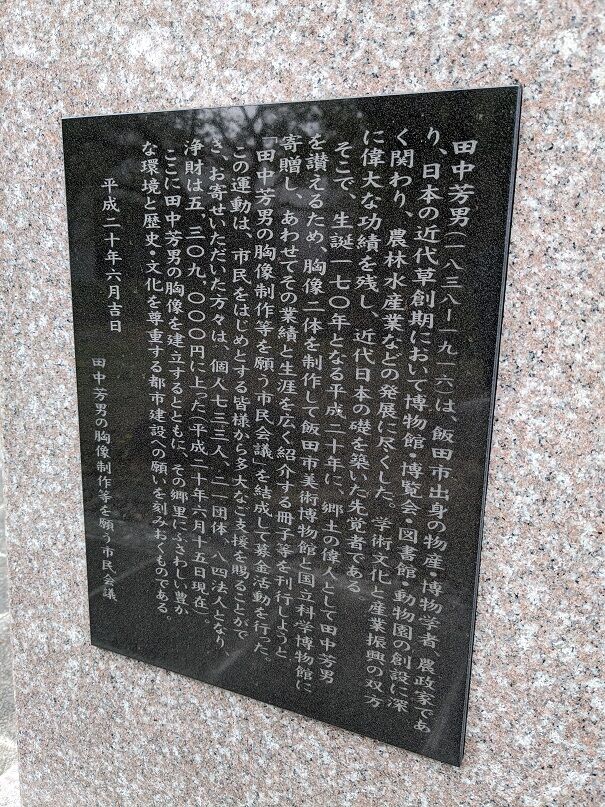 田中芳男(一八三八ー一九一六)は、飯田市出身の物産・博物学者、農政家であ
り、日本の近代草創期において博物館・博覧会・図書館・動物園の創設に深
く関わり、農林水産業などの発展に尽くした。学術文化と産業振興の双方
に偉大な功績を残し、近代日本の礎を築いた先覚者である
そこで、生誕一七〇年となる平成二十年に、郷土の偉人として田中芳男
を讃えるため、胸像二体を制作して飯田市美術博物館と国立科学博物館に
寄贈し、あわせてその業績と生涯を広く紹介する冊子等を刊行しようと
「田中芳男の胸像制作等を願う市民会議」を結成して募金活動を行った。
この運動は、市民をはじめとする皆様から多大なご支援を賜ることがで
き、お寄せいただいた方々は、個人七三三人、二一団体、八四法人となり、
浄財は五,三〇九,〇〇〇円に上った(平成二十年六月十五日現在)。
ここに田中芳男の胸像を建立するとともに、その郷里にふさわしい豊か
な環境と歴史・文化を尊重する都市建設への願いを刻みおくものである。
平成二十年六月吉日
田中芳男の胸像制作等を願う市民会議